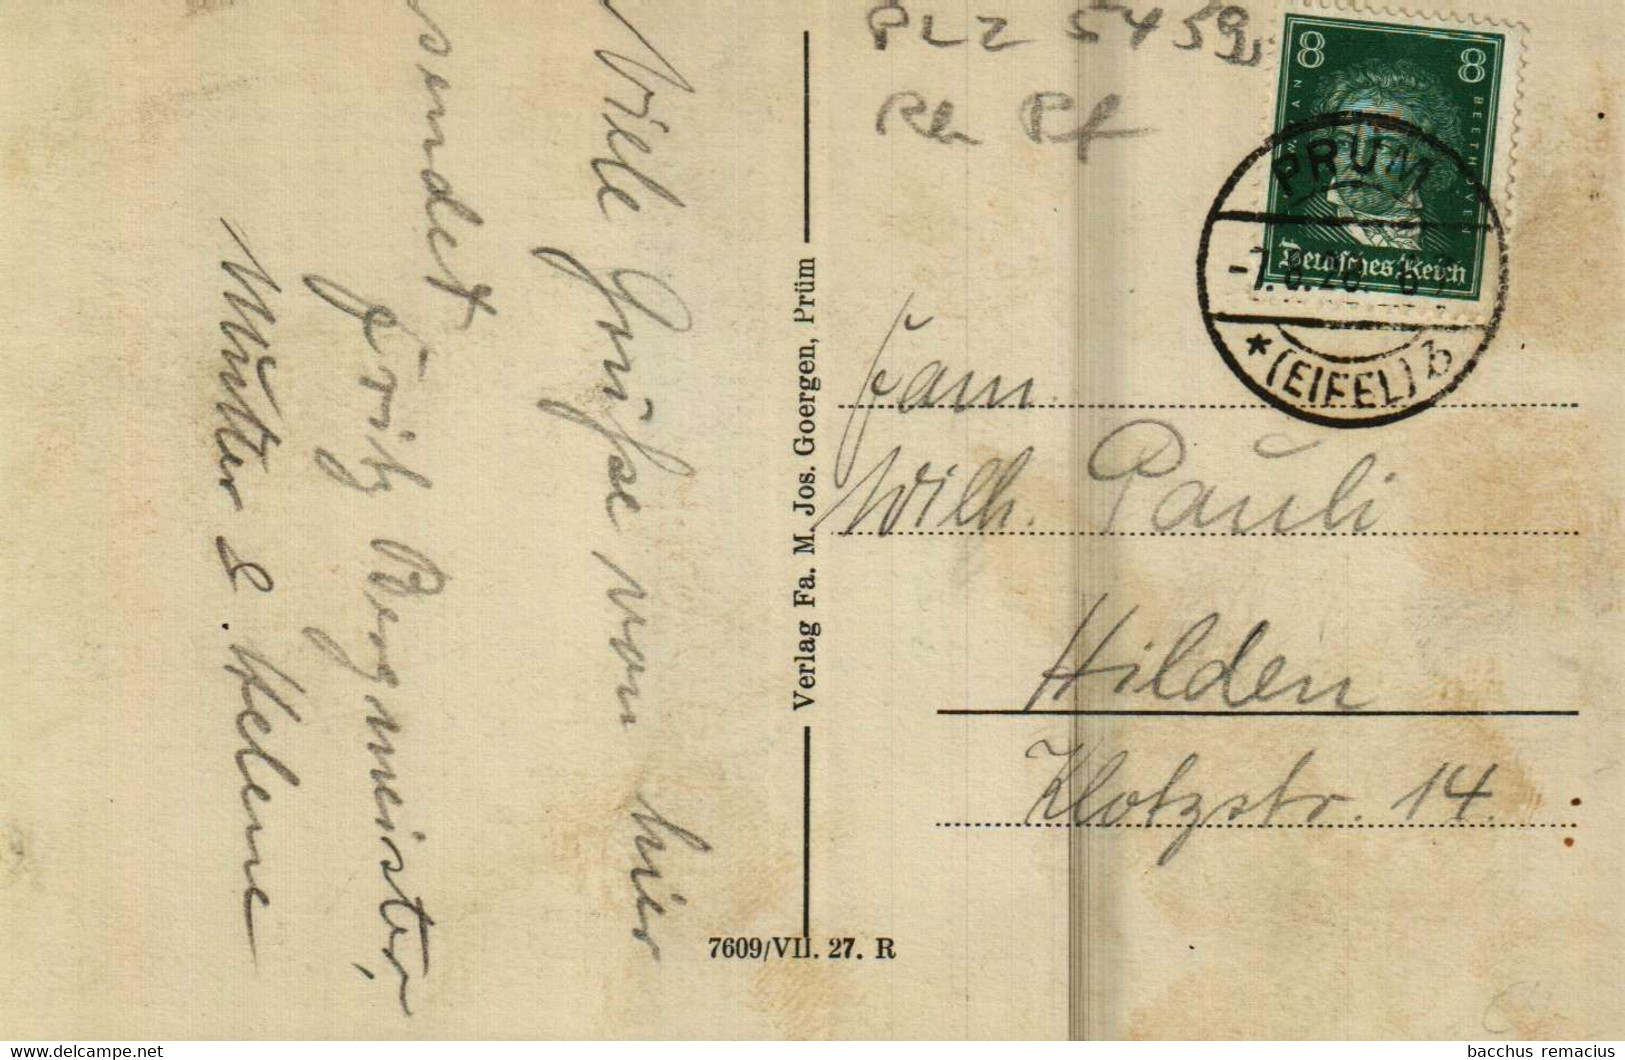 Viele Grüße von hier
sendet
Fritz Bergmeister,
Mutter & Helene
Verlag Fa. M. Jos. Goergen, Prüm
7609/VII. 27. R
PLZ 5459
Rh Pf
8 8
BEETHOVEN
Deutsches Reich
PRÜM
-7.8.28. 8-9
* (EIFEL) b
Fam.
Wilh. Pauli
Hilden
Klotzstr. 14.
bacchus remacius